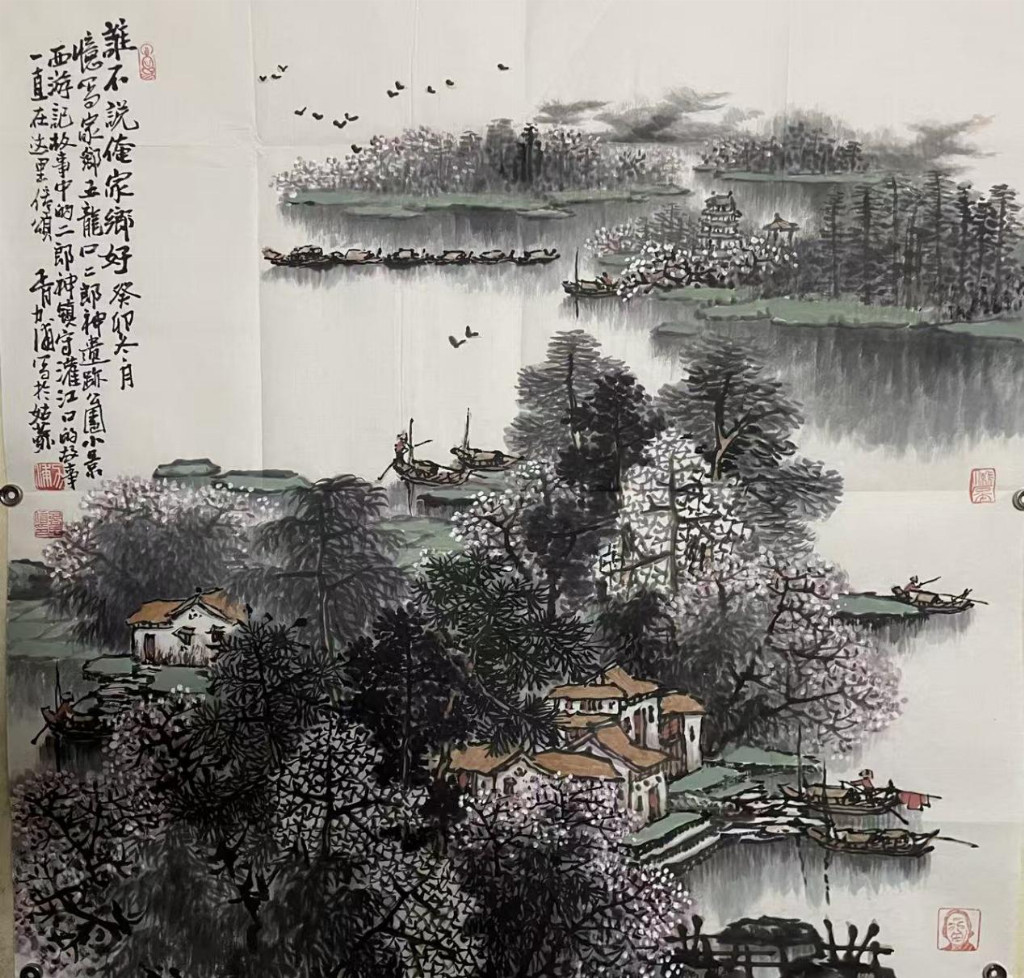 誰不説俺家鄉好 癸卯冬月
憶写家鄉五龍口二郎神遺跡公園小景
西游記故事中的二郎神镇守灌江口的故事
一直在这里传頌 写於姑蘇